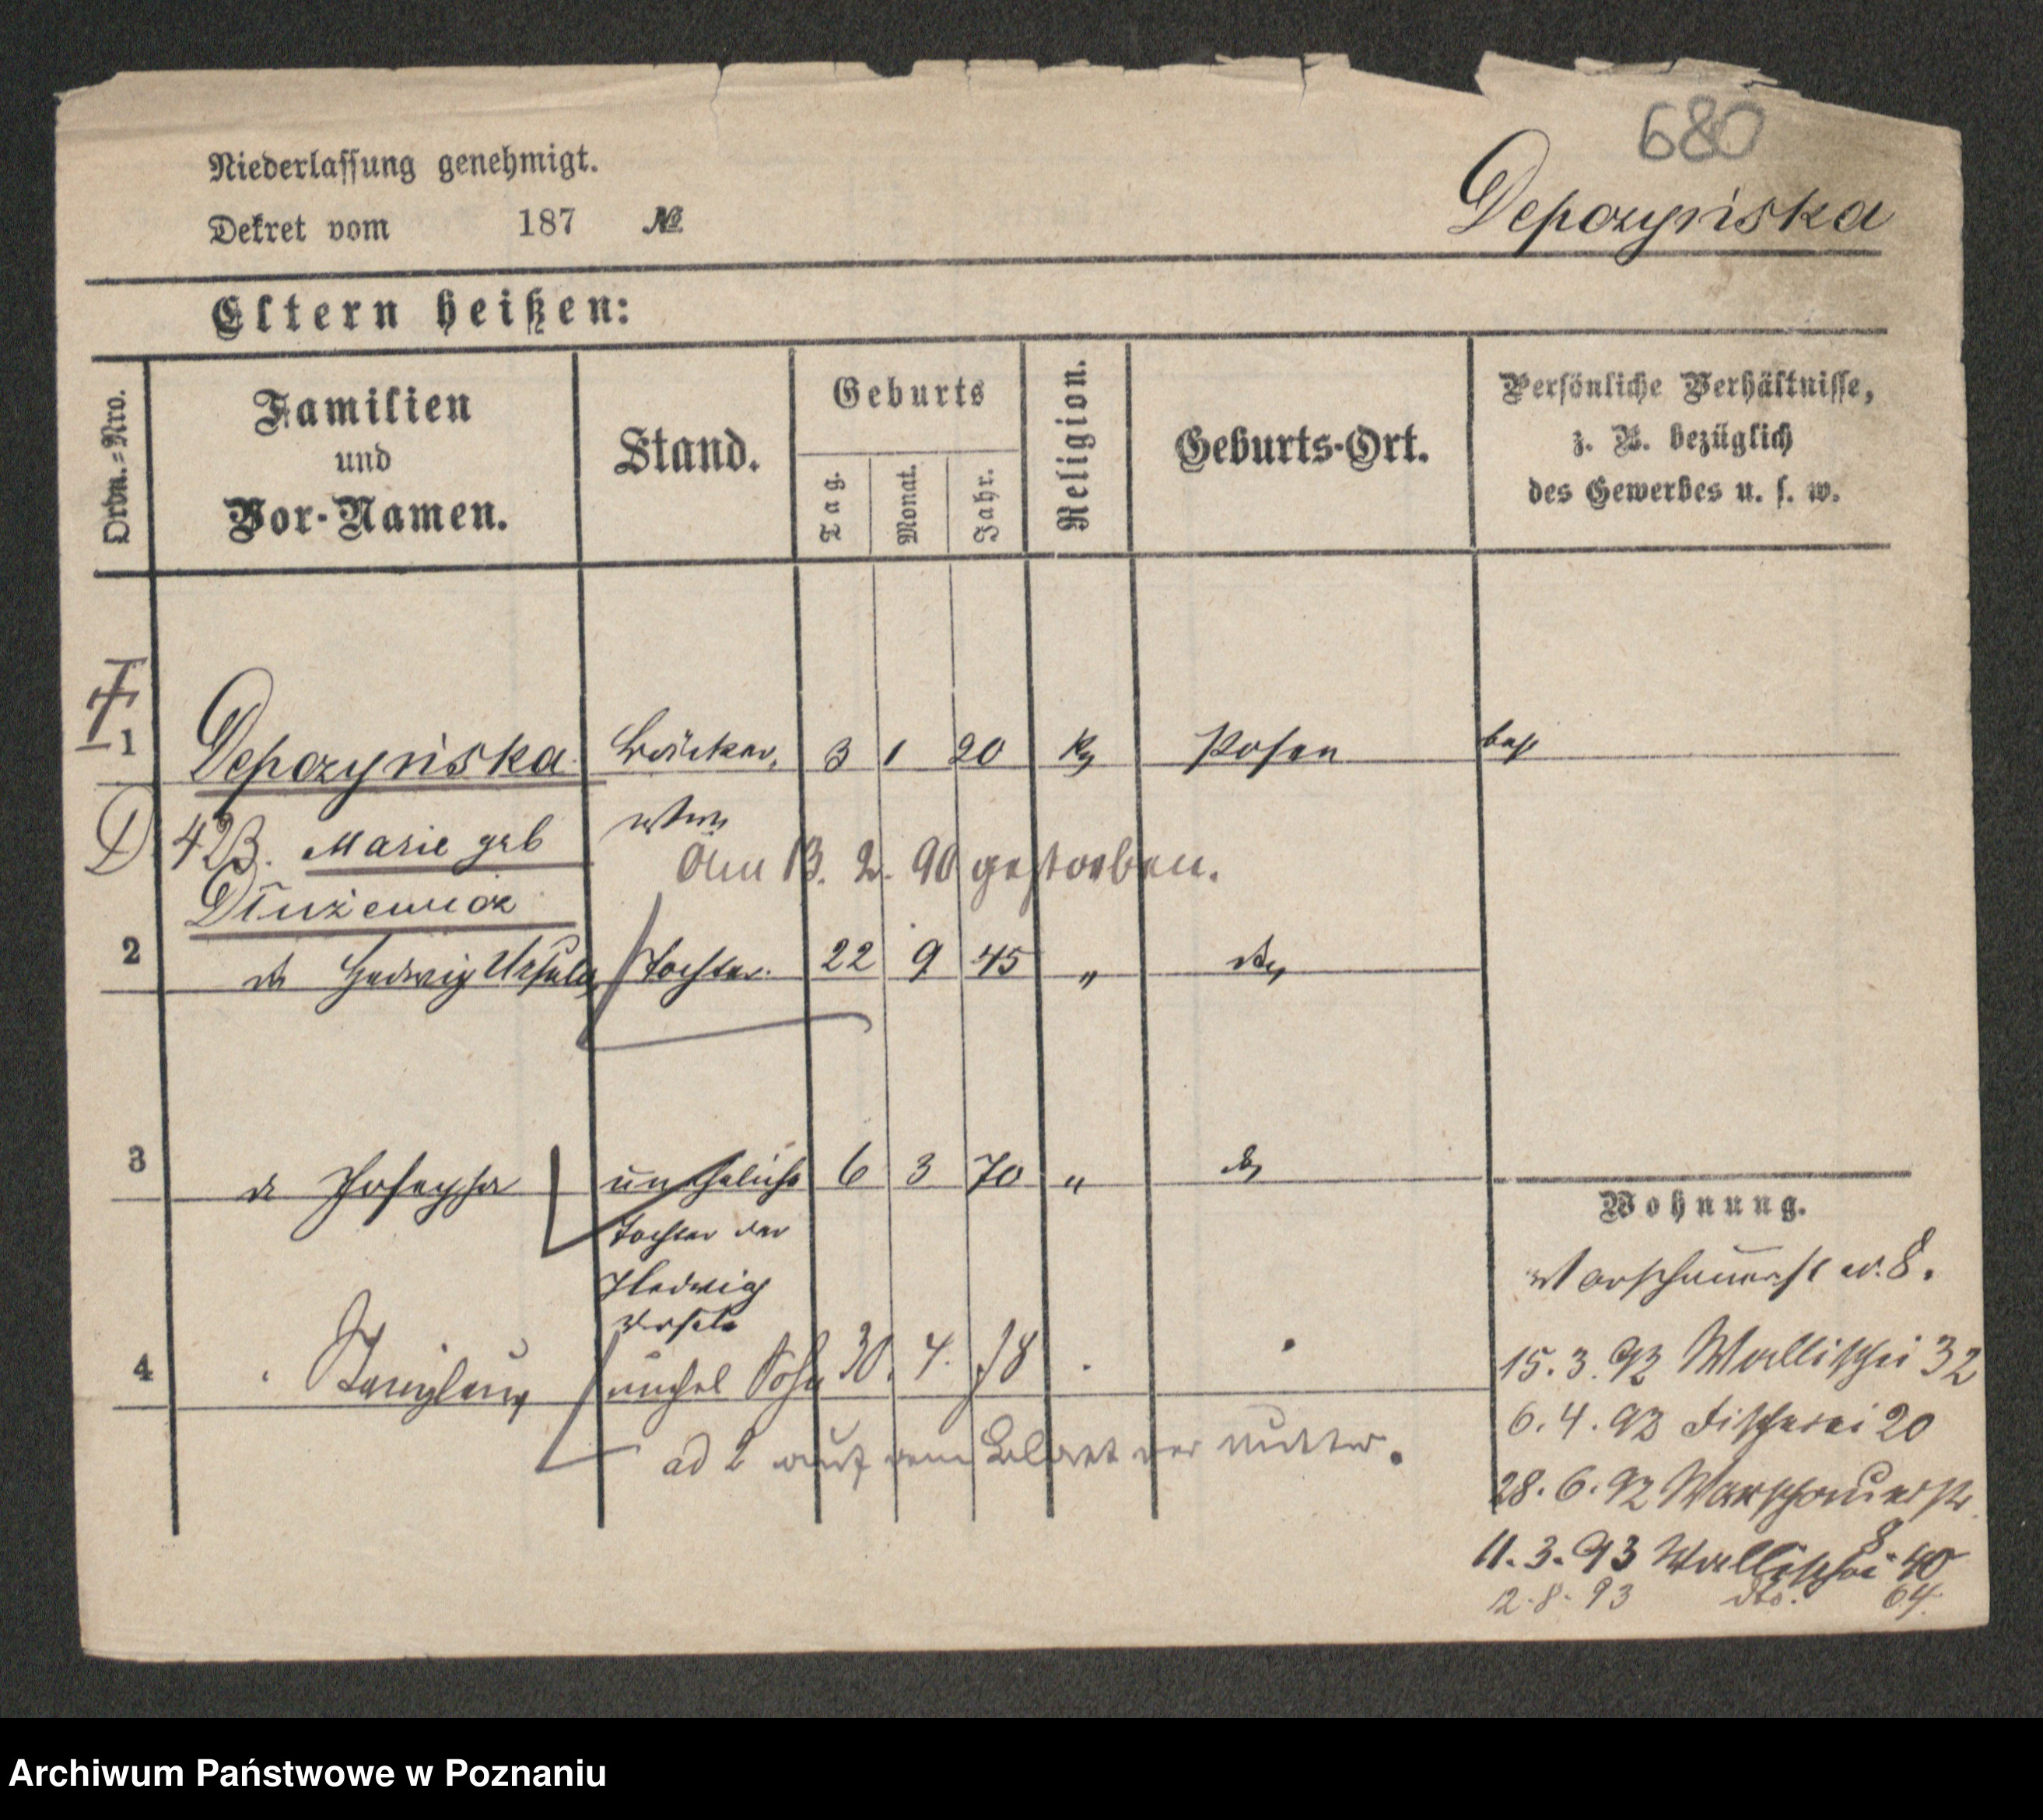 680
Niederlassung genehmigt.
Dekret vom 187 №
Depozyńska
Eltern heißen:
Ordn.-Nro.
Familien
und
Vor-Namen.
Stand.
Geburts
Tag.
Monat.
Jahr.
Religion.
Geburts-Ort.
Persönliche Verhältnisse,
z. B. bezüglich
des Gewerbes u. s. w.
1 Depozyńska 3 1 20 Posen
Marie geb
Am 13. 2. 90 gestorben.
Dłużewicz
2 Hedwig Ursula Tochter 22 9 45 "
3 Josepha uneheliche 6 3 70 "
Tochter der
Hedwig
Ursula
4 Stanislaus unehel Sohn 30. 4. 78
ad 2 auf dem Blatt der Mutter.
Wohnung.
Warschauerst 8.
15. 3. 92 Wallischei 32
6. 4. 92 Fischerei 20
28. 6. 92 Warschauerstr
8
11. 3. 93 Wallischei 40
12. 8. 93 dto. 64.
Archiwum Państwowe w Poznaniu